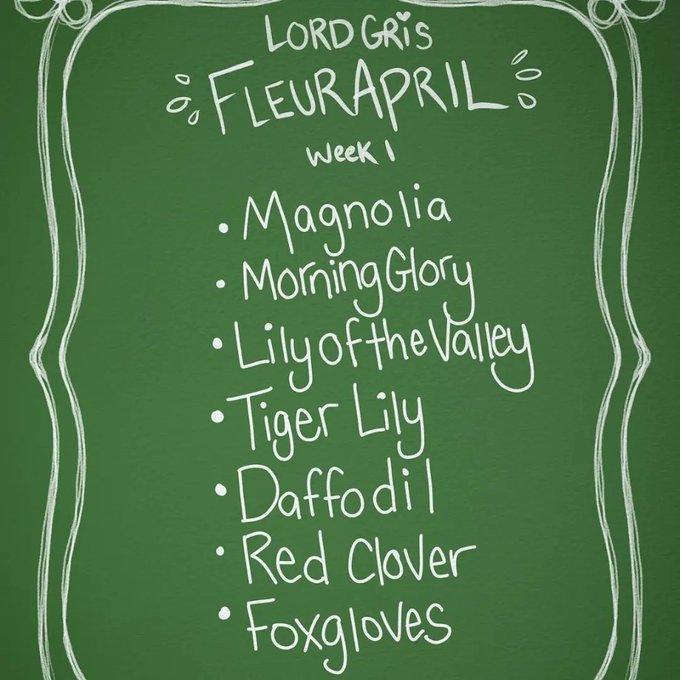 LORD GRiS
FLEURAPRIL
Week 1
• Magnolia
• Morning Glory
• Lily of the Valley
• Tiger Lily
• Daffodil
• Red Clover
• Foxgloves